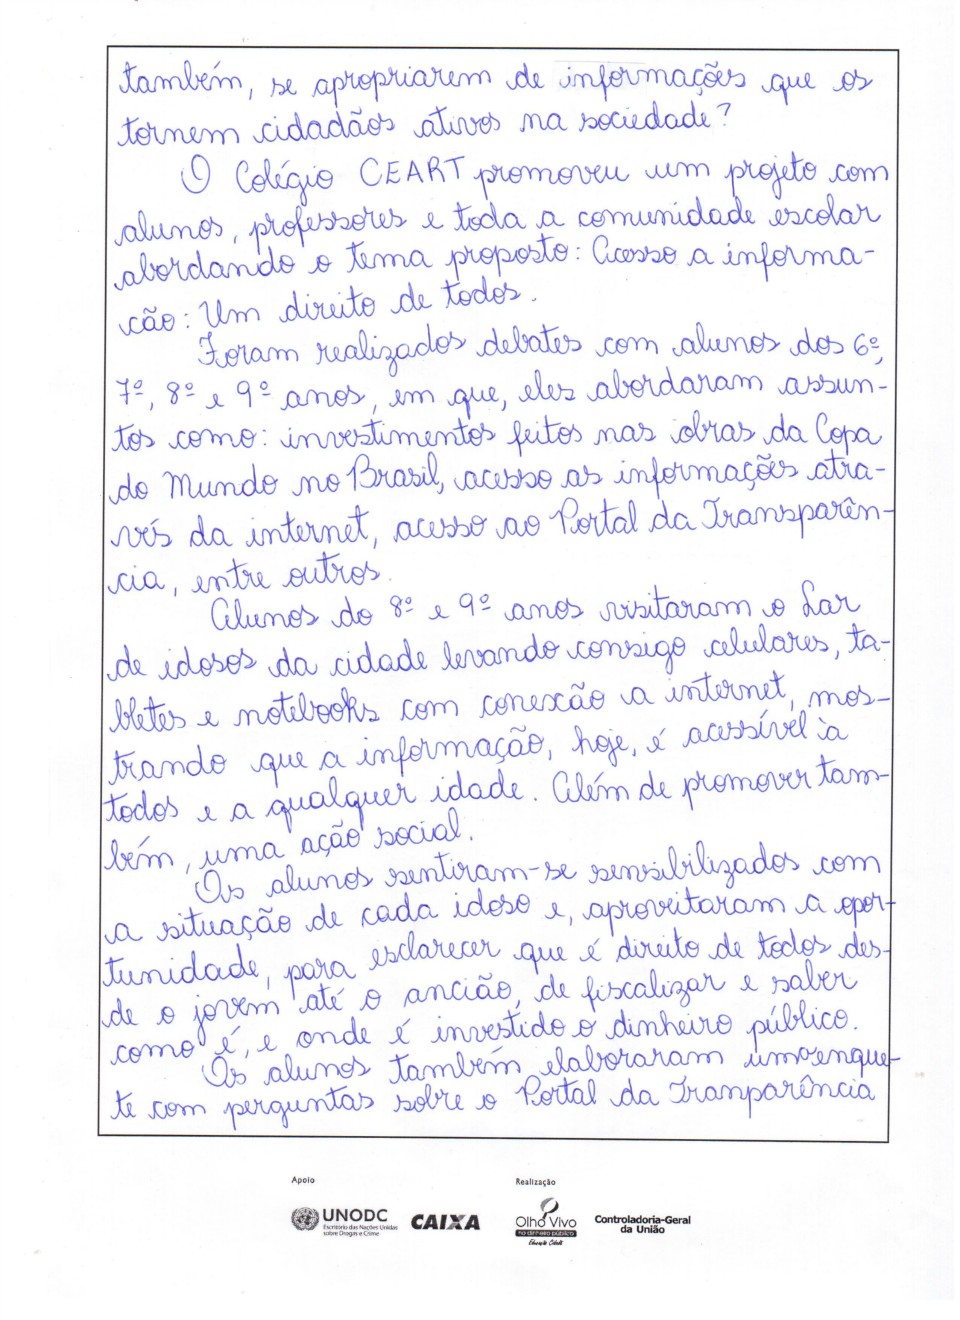 também, se apropriarem de informações que os
tornem cidadãos ativos na sociedade?
O Colégio CEART promoveu um projeto com
alunos, professores e toda a comunidade escolar
abordando o tema proposto: Acesso a informa-
ção: Um direito de todos.
Foram realizados debates com alunos dos 6º,
7º, 8º e 9º anos, em que, eles abordaram assun-
tos como: investimentos feitos nas obras da Copa
do Mundo no Brasil, acesso as informações atra-
vés da internet, acesso ao Portal da Transparên-
cia, entre outros.
Alunos do 8º e 9º anos visitaram o Lar
de idosos da cidade levando consigo celulares, ta-
bletes e notebooks com conexão a internet, mos-
trando que a informação, hoje, é acessível à
todos e a qualquer idade. Além de promover tam-
bém, uma ação social.
Os alunos sentiram-se sensibilizados com
a situação de cada idoso e, aproveitaram a opor-
tunidade, para esclarecer que é direito de todos des-
de o jovem até o ancião, de fiscalizar e saber
como é, e onde é investido o dinheiro público.
Os alunos também elaboraram uma enque-
te com perguntas sobre o Portal da Tranparência
Apoio
Realização
UNODC
Escritório das Nações Unidas
sobre Drogas e Crime
CAIXA
Olho Vivo
no dinheiro público
Educação Cidadã
Controladoria-Geral
da União